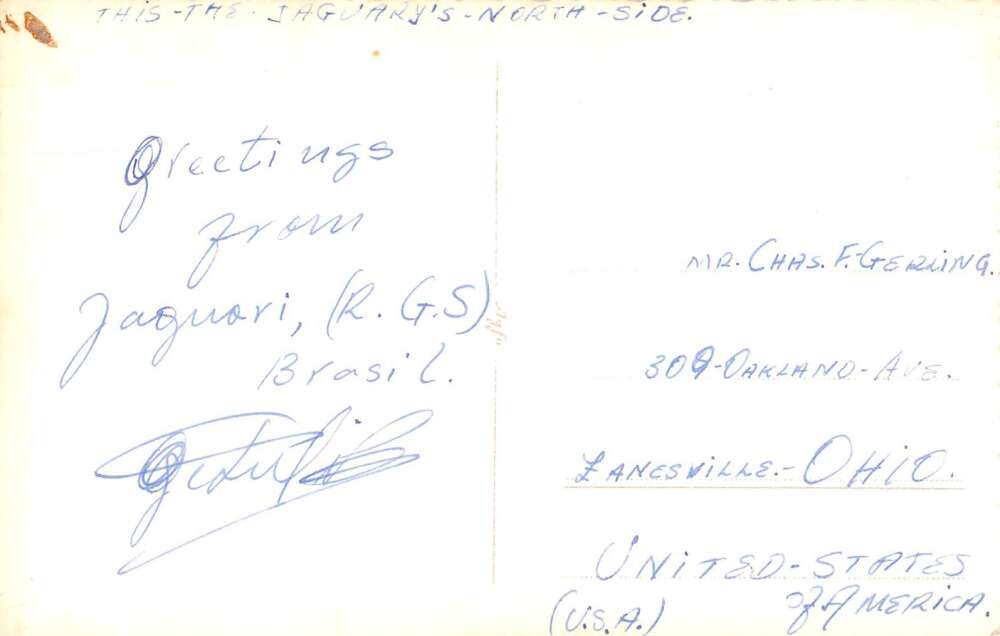 THIS-THE-JAGUARY'S-NORTH-SIDE.
Greetings
from
Jaguari, (R.G.S)
Brasil.
MR. CHAS. F. GERLING.
309-OAKLAND-AVE.
ZANESVILLE.-OHIO.
UNITED-STATES
of AMERICA.
(U.S.A.)